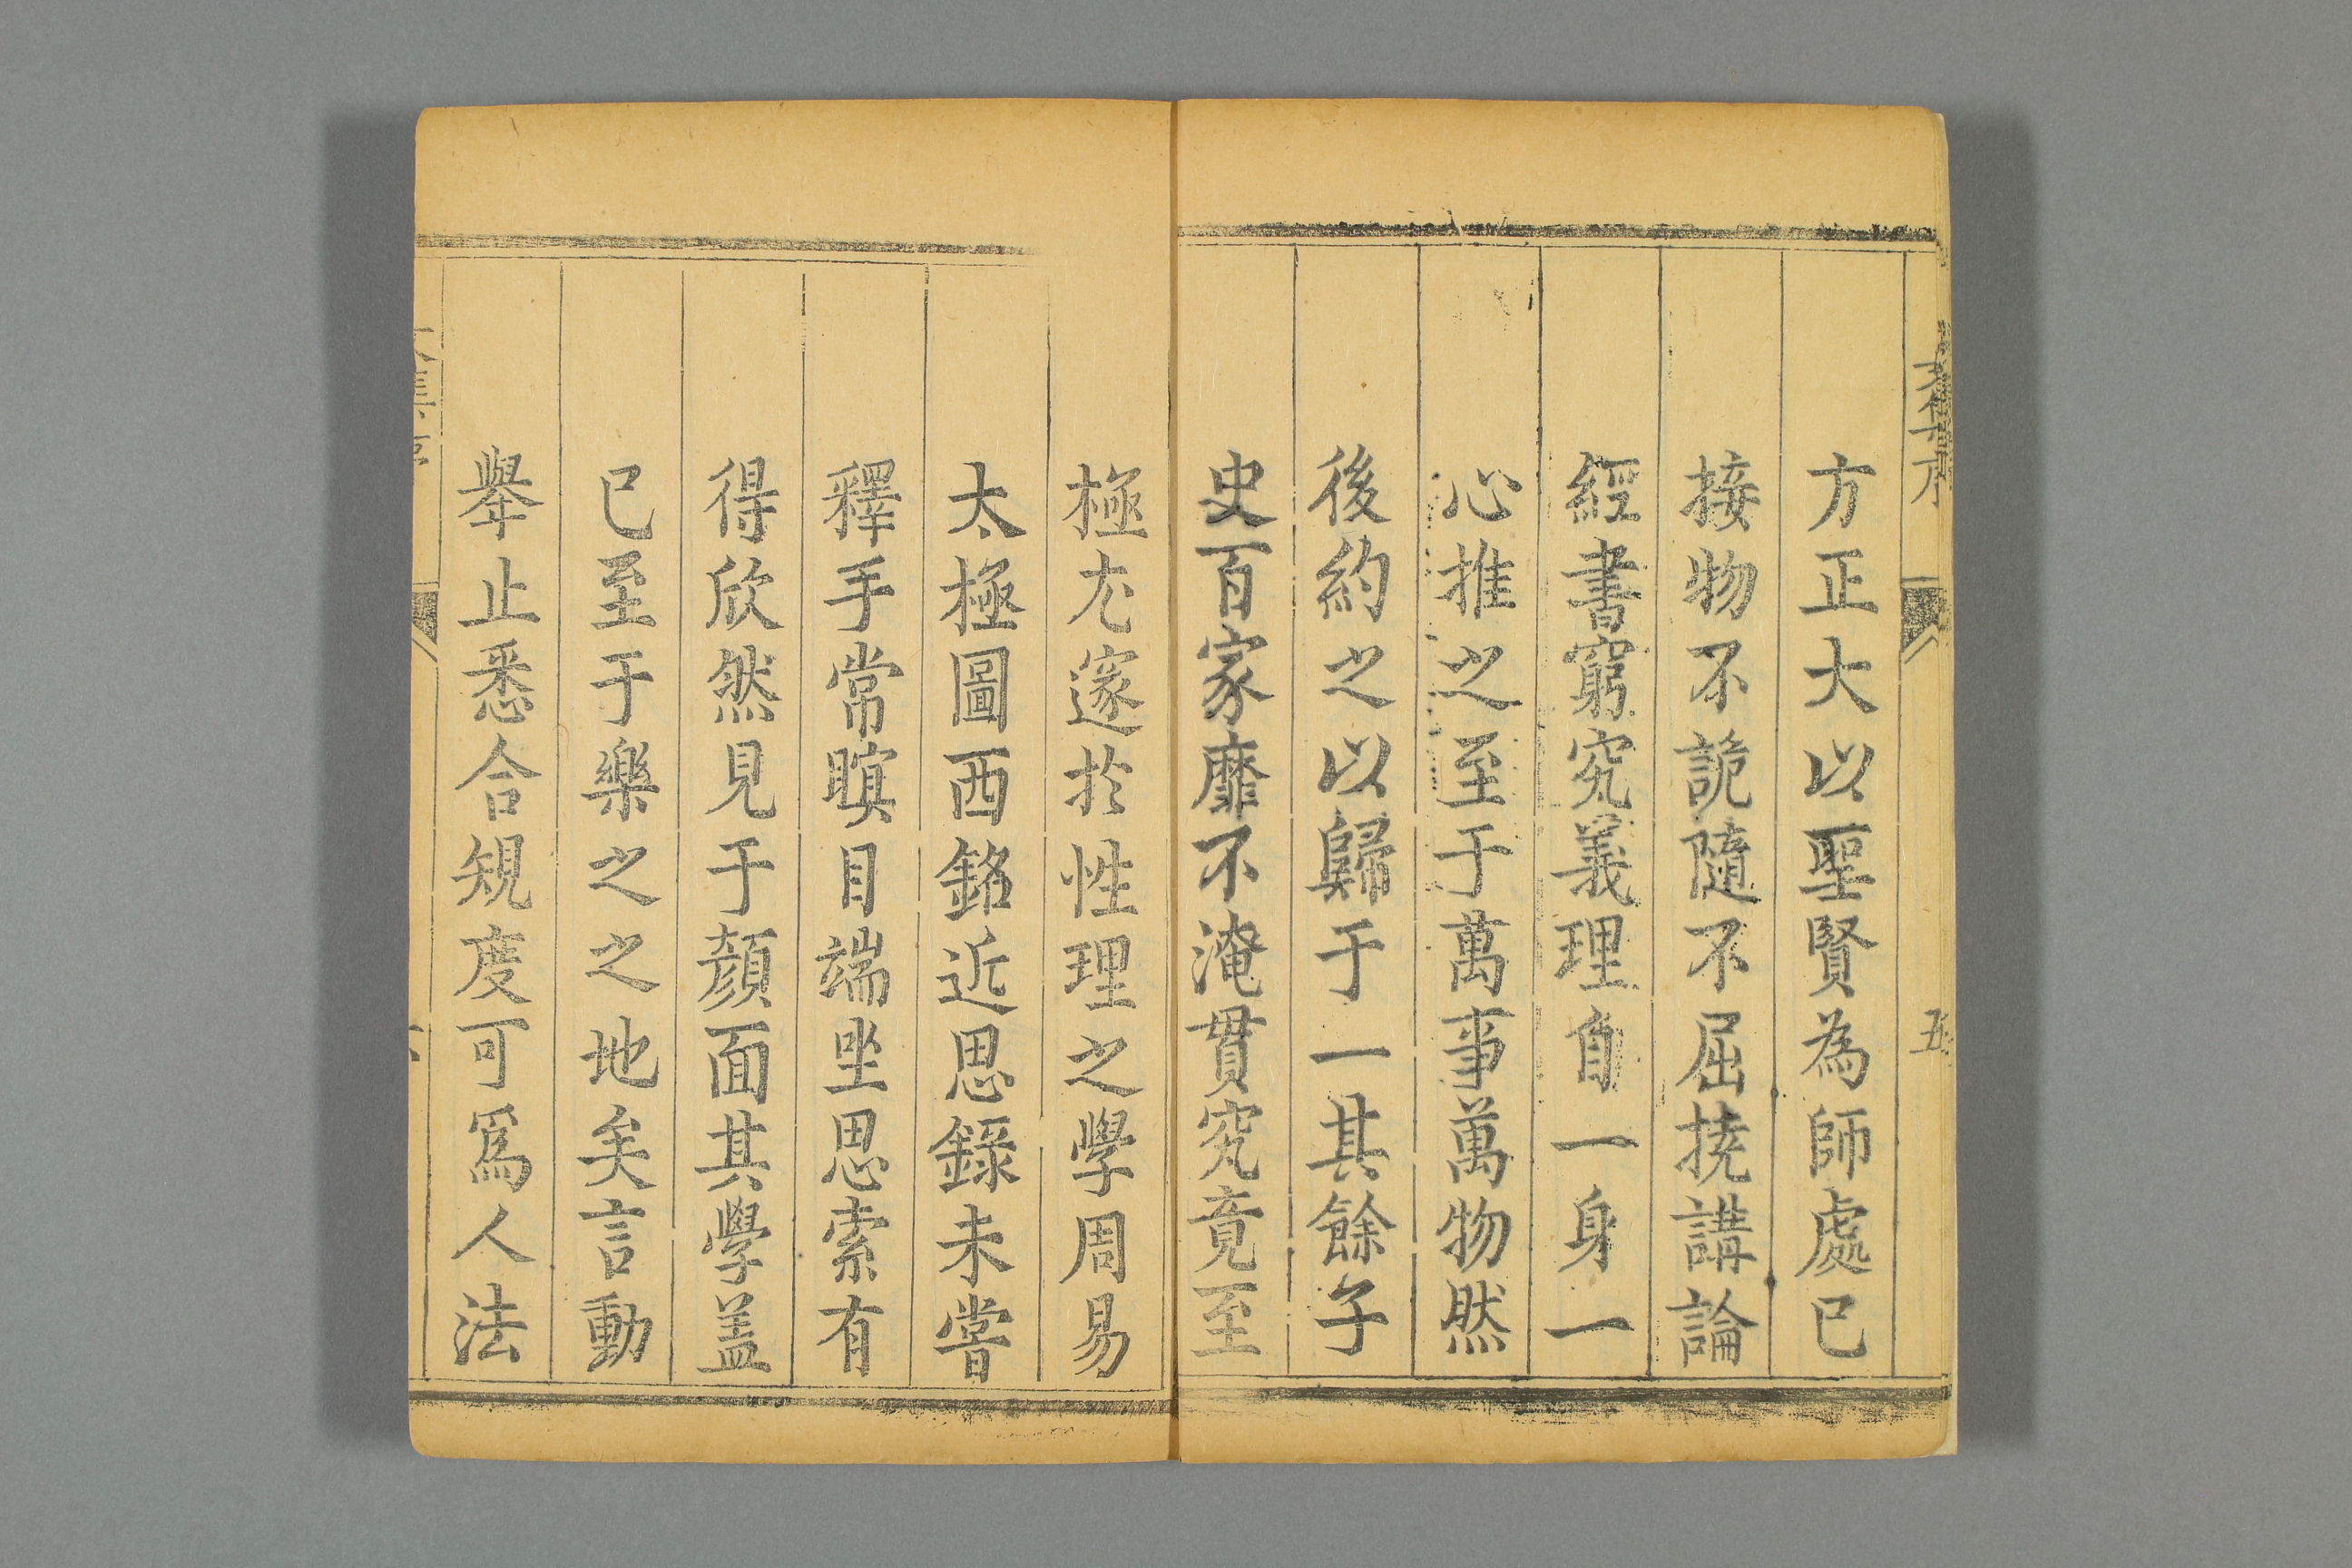 文集序
五
方正大以聖賢為師處已
接物不詭隨不屈撓講論
經書窮究義理自一身一
心推之至于萬事萬物然
後約之以歸于一其餘子
史百家靡不淹貫究竟至
極尤邃於性理之學周易
太極圖西銘近思錄未嘗
釋手常瞑目端坐思索有
得欣然見于顏面其學盖
已至于樂之之地矣言動
舉止悉合䂓度可爲人法